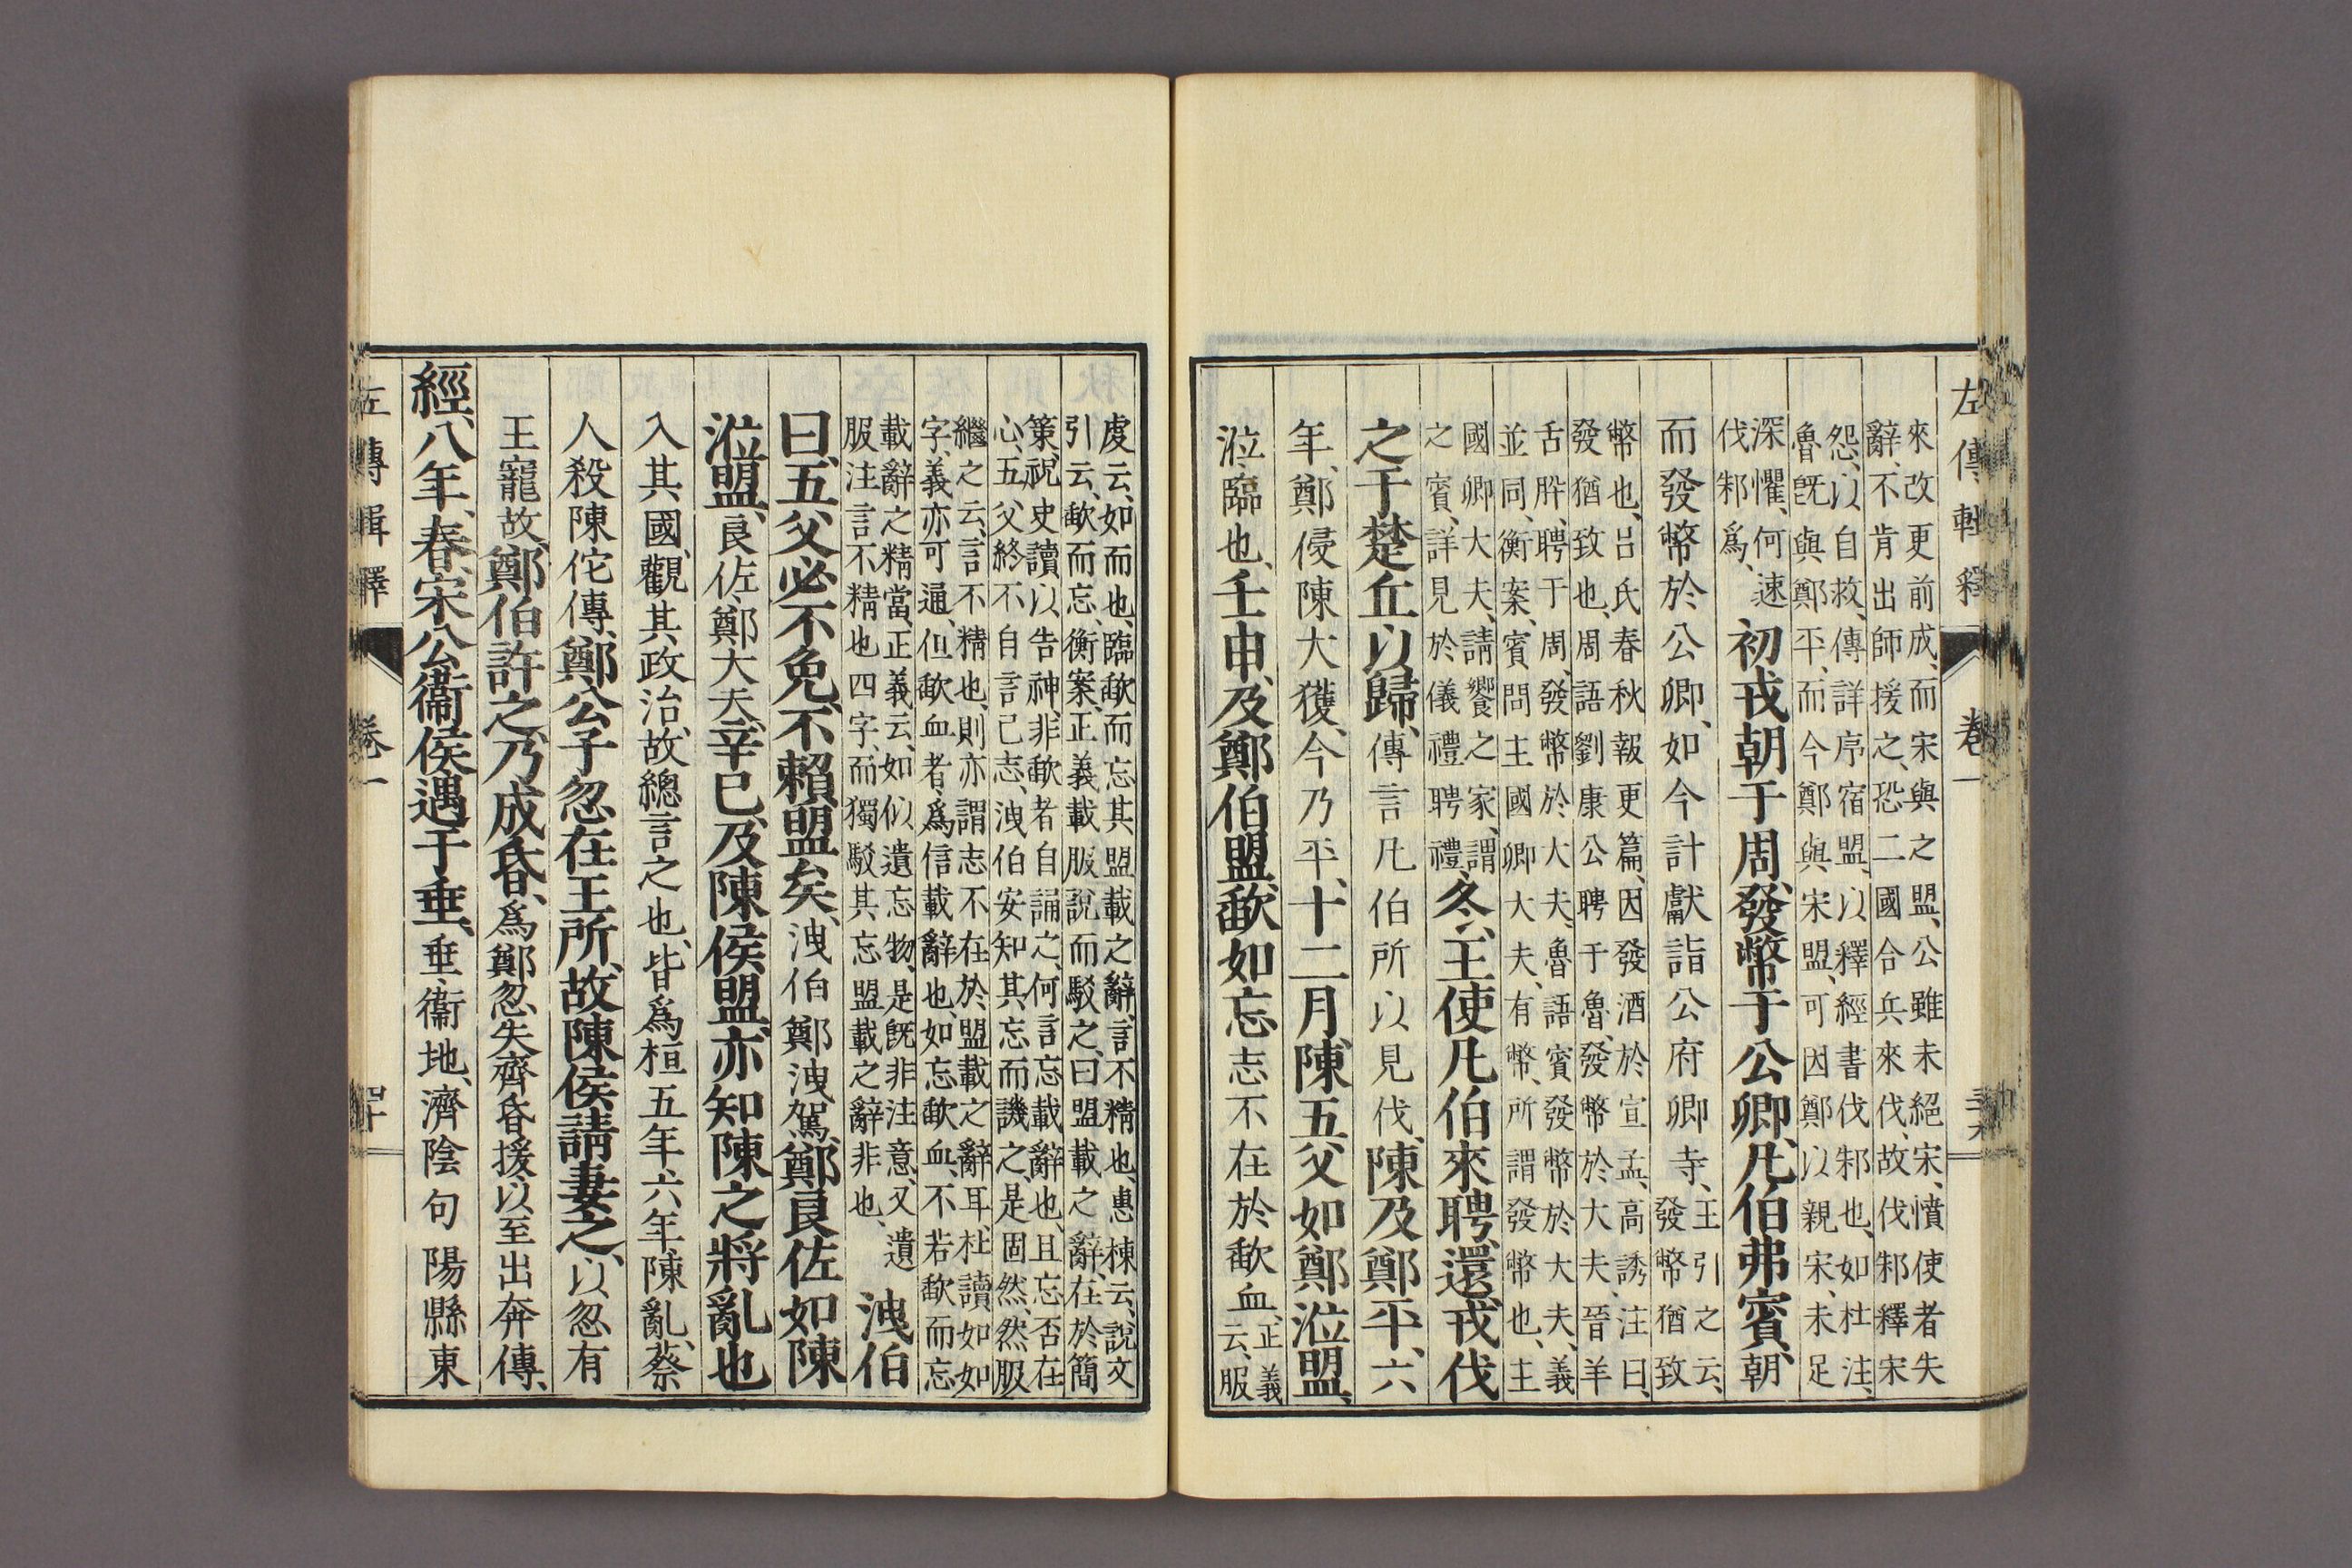 左傳輯釋 卷一
來改更前成、而宋與之盟、公雖未絕宋、憤使者失
辭、不肯出師援之、恐二國合兵來伐、故伐邾釋宋
怨、以自救、傳詳序宿盟、以釋經書伐邾也、如杜注、
魯旣與鄭平、而今鄭與宋盟、可因鄭以親宋、未足
深懼、何速
伐邾爲、
初戎朝于周、發幣于公卿、凡伯弗賓、朝
而發幣於公卿、如今計獻詣公府卿寺、
王引之云、
發幣猶致
幣也、呂氏春秋報更篇、因發酒於宣孟、高誘注曰、
發猶致也、周語劉康公聘于魯、發幣於大夫、晉羊
舌肸、聘于周、發幣於大夫、魯語賓發幣於大夫、義
並同、衡案、賓問主國卿大夫、有幣、所謂發幣也、主
國卿大夫、請饗之家、謂
之賓、詳見於儀禮聘禮、
冬、王使凡伯來聘、還、戎伐
之于楚丘以歸、傳言凡伯所以見伐、陳及鄭平、六
年、鄭侵陳大獲、今乃平、十二月、陳五父如鄭涖盟、
涖、臨也、壬申、及鄭伯盟、歃如忘、志不在於歃血、
正義
云、服
虔云、如而也、臨歃而忘其盟載之辭、言不精也、惠棟云、說文
引云、歃而忘、衡案、正義載服說而駁之、曰盟載之辭、在於簡
策、祝史讀以告神、非歃者自誦之、何言忘載辭也、且忘否在
心、五父終不自言己志、洩伯安知其忘而譏之、是固然、然服
繼之云、言不精也、則亦謂志不在於盟載之辭耳、杜讀如如
字、義亦可通、但歃血者、爲信載辭也、如忘歃血、不若歃而忘
載辭之精當、正義云、如似遺忘物、是旣非注意、又遺
服注言不精也四字、而獨駁其忘盟載之辭非也、
洩伯
曰、五父必不免、不賴盟矣、洩伯鄭洩駕、鄭良佐如陳
涖盟、良佐、鄭大夫、辛巳、及陳侯盟、亦知陳之將亂也
入其國、觀其政治、故總言之也、皆爲桓五年六年陳亂、蔡
人殺陳佗傳、鄭公子忽在王所、故陳侯請妻之、以忽有
王寵故、鄭伯許之、乃成昏、爲鄭忽失齊昏援以至出奔傳、
經、八年、春、宋公衞侯遇于垂、垂、衞地、濟陰句陽縣東
左傳輯釋 卷一 四十